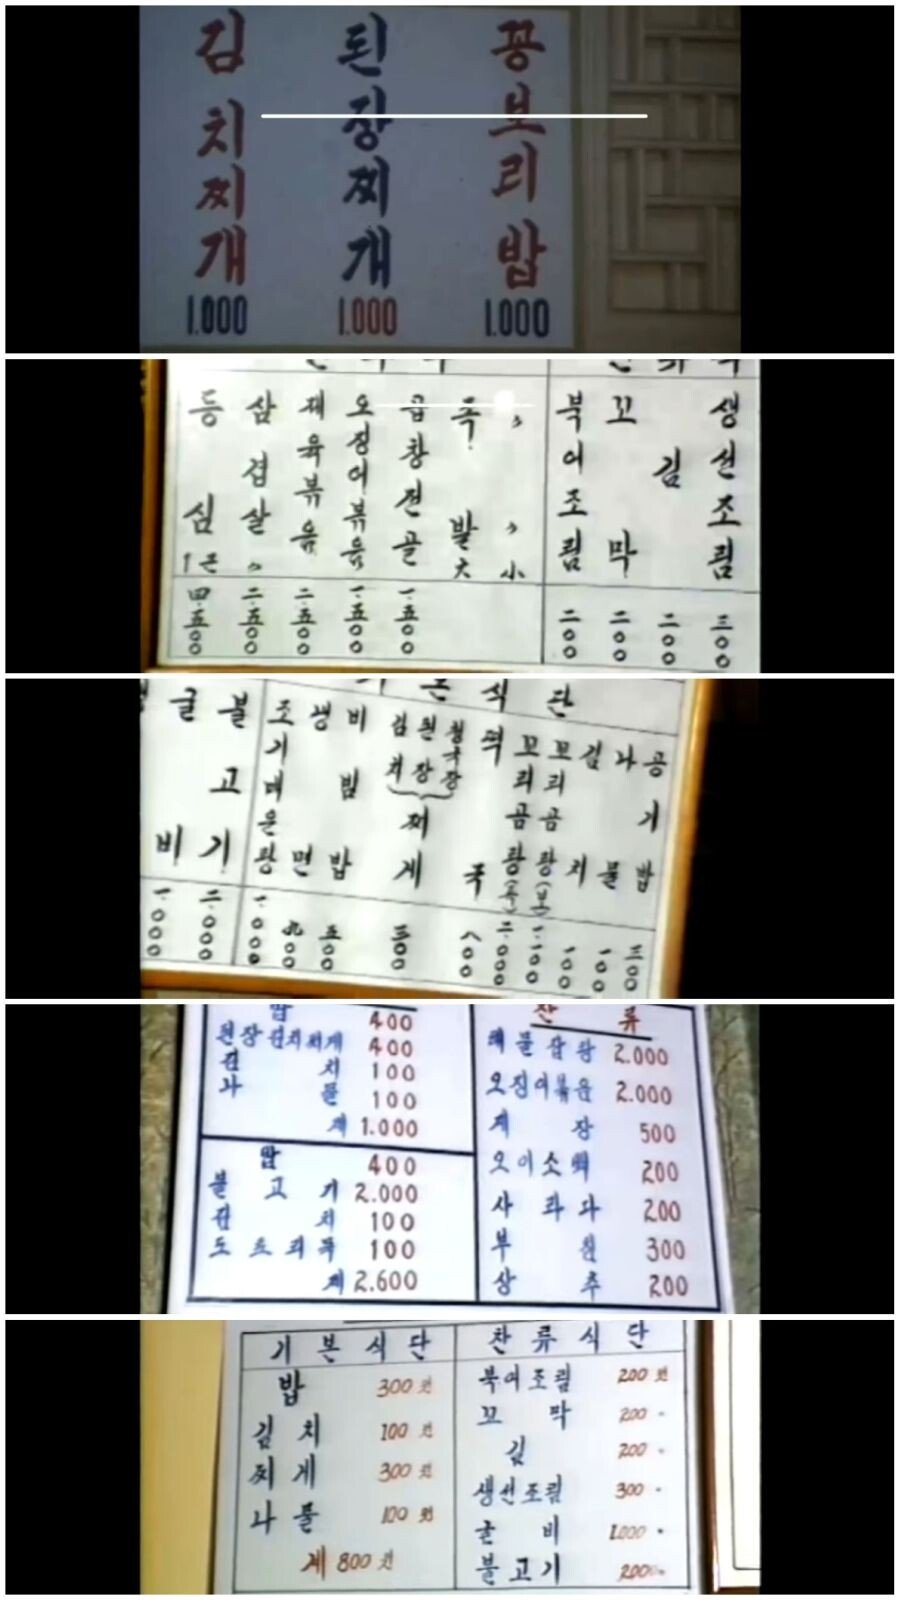 김치찌개 1.000
된장찌개 1.000
꽁보리밥 1.000
등심 1근 四.五00
삼겹살 〃 二.五00
제육볶음 二.五00
오징어볶음 一.五00
곱창전골 一.五00
족발 大
〃 〃 小
북어조림 二00
꼬막 二00
김 二00
생선조림 三00
기본식단
굴비 一.000
불고기 二.000
조기매운탕 一.000
생면 九00
비빔밥 五00
김치 된장 청국장 찌게 三00
떡국 八00
꼬리곰탕
꼬리곰탕 (보)
김치 一00
나물 一00
공기밥 三00
밥 400
된장김치찌게 400
김치 100
나물 100
계 1.000
밥 400
불고기 2.000
김치 100
도토리묵 100
계 2.600
찬류
해물잡탕 2.000
오징어볶음 2.000
게장 500
오이소백 200
사라다 200
부침 300
상추 200
기본식단
밥 300원
김치 100원
찌게 300원
나물 100원
계 800원
찬류식단
북어조림 200원
꼬막 200 -
김 200 -
생선조림 300 -
굴비 1.000 -
불고기 2000 -